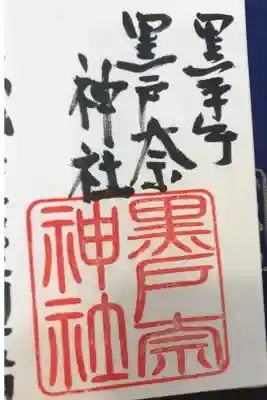 黒平
黒戸奈
神社
黒戸奈
神社